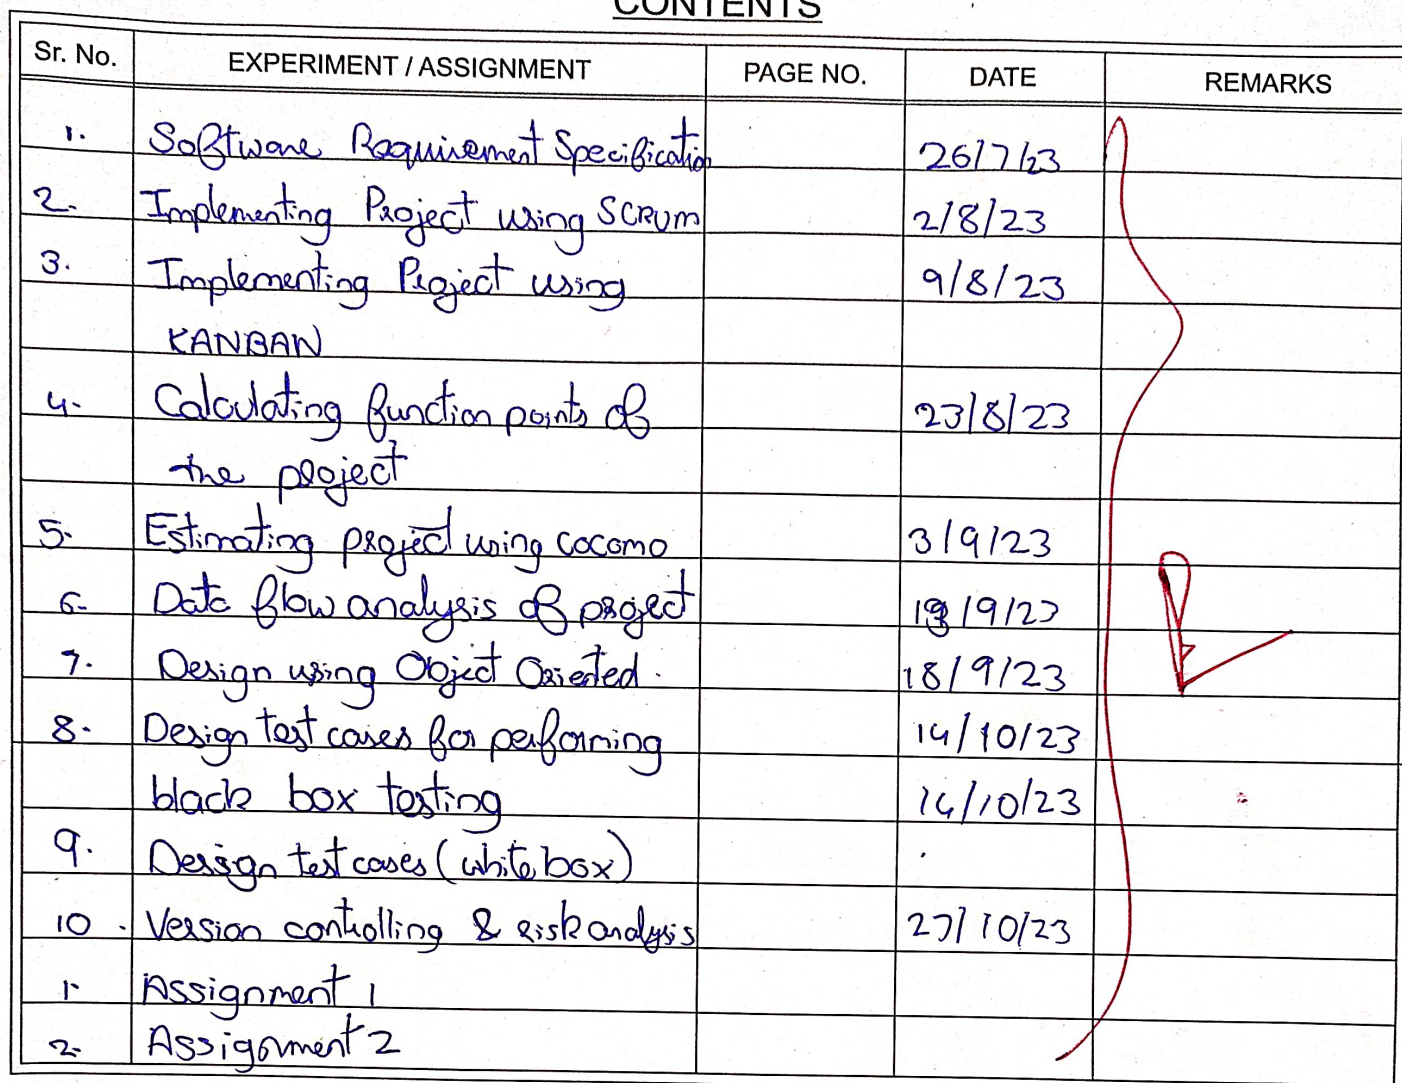 CONTENTS
Sr. No. EXPERIMENT / ASSIGNMENT PAGE NO. DATE REMARKS
1. Software Requirement Specification 26/7/23
2. Implementing Project using SCRUM 2/8/23
3. Implementing Project using 9/8/23
KANBAN
4. Calculating function points of 23/8/23
the project
5. Estimating project using COCOMO 3/9/23
6. Data flow analysis of project /9/23
7. Design using Object Oriented. 18/9/23
8. Design test cases for performing 14/10/23
black box testing 14/10/23
9. Design test cases (white box)
10. Version controlling & risk analysis 27/10/23
1. Assignment 1
2. Assignment 2